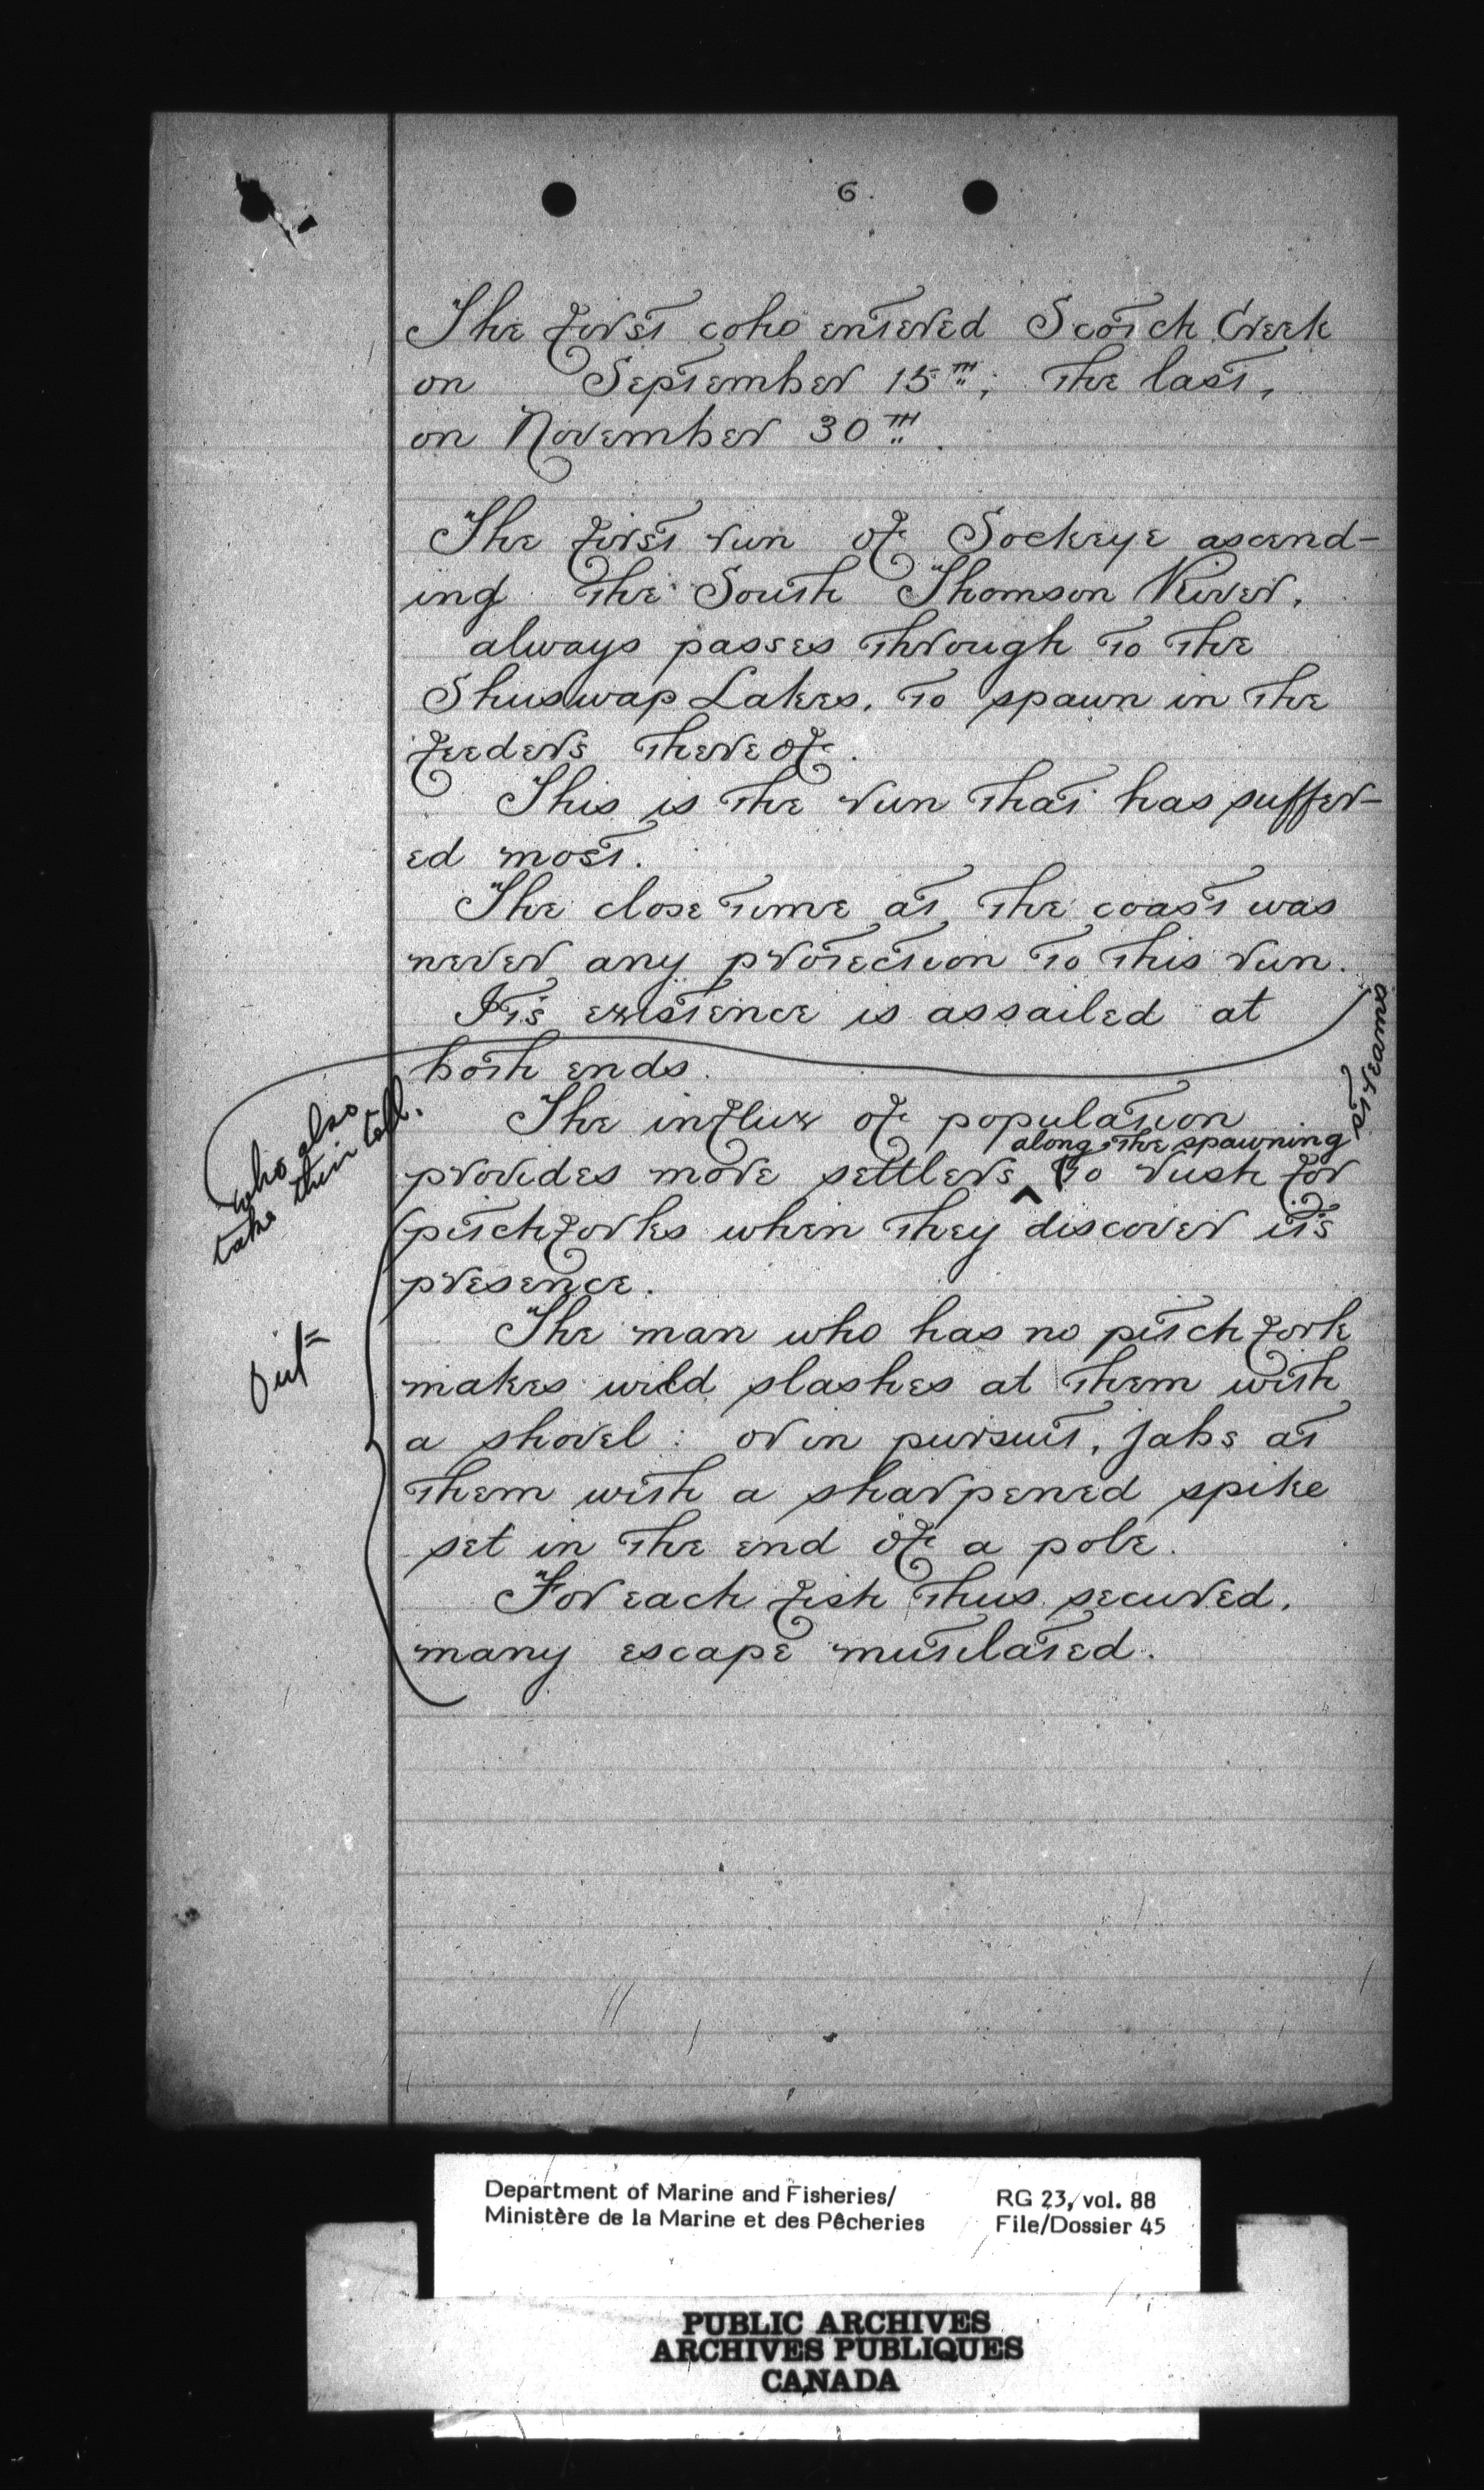 6.
The first coho entered Scotch Creek
on September 15TH; the last,
on November 30TH.
The first run of Sockeye ascend-
ing the South Thomson River,
always passes through to the
Shuswap Lakes, to spawn in the
feeders thereof.
This is the run that has suffer-
ed most.
The close time at the coast was
never any protection to this run.
It's existence is assailed at
both ends.
The influx of population
along the spawning
streams
provides more settlers ^ to rush for
who also
take their toll.
pitchforks when they discover it's
presence.
The man who has no pitchfork
makes wild slashes at them with
a shovel: or in pursuit, jabs at
them with a sharpened spike
set in the end of a pole.
For each fish thus secured,
many escape mutilated.
Department of Marine and Fisheries/
Ministère de la Marine et des Pêcheries
RG 23, vol. 88
File/Dossier 45
PUBLIC ARCHIVES
ARCHIVES PUBLIQUES
CANADA